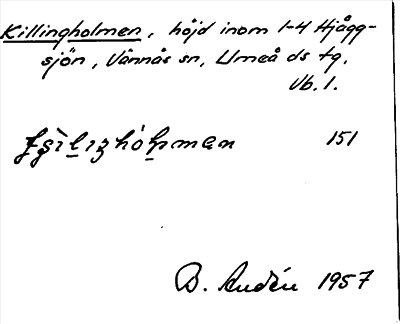 Killingholmen, höjd inom 1-4 Hjågg-
sjön, Vännäs sn, Umeå ds tg.
Vb. 1.
151
B. Audén 1957